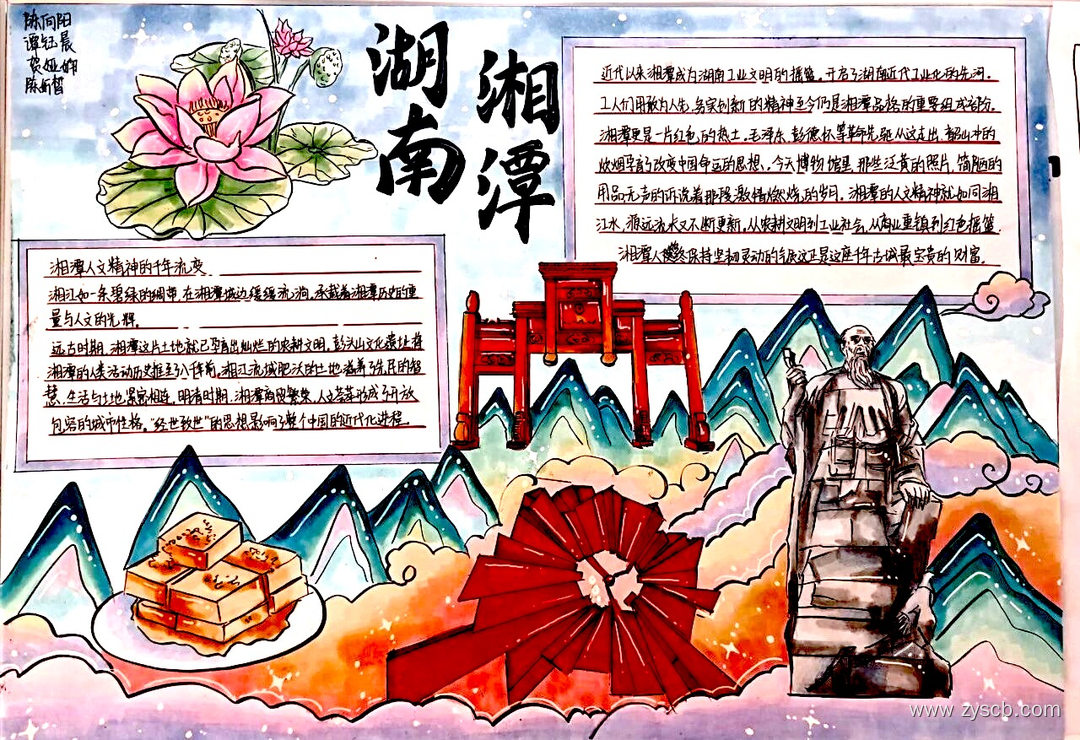 陈向阳
谭钰晨
贺娅
陈昕哲
湖南
湘潭
近代以来湘潭成为湖南工业文明的摇篮，开启了湖南近代工业化的先河。
工人们用敢为人先，务实创新的精神至今仍是湘潭品格的重要组成部份。
湘潭更是一片红色的热土，毛泽东、彭德怀等革命先驱从这走出，韶山冲的
炊烟孕育了改变中国命运的思想，今天博物馆里，那些泛黄的照片，简陋的
用品无声的诉说着那段激情燃烧的岁月，湘潭的人文精神就如同湘
江水，源远流长又不断更新，从农耕文明到工业社会，从商业重镇到红色摇篮
湘潭人始终保持坚韧灵动的气质这正是这座千年古城最宝贵的财富。
湘潭人文精神的千年流变
湘江如一条碧绿的绸带，在湘潭城边缓缓流淌，承载着湘潭历史的重
量与人文的光辉。
远古时期，湘潭这片土地就已孕育出灿烂的农耕文明，彭头山文化遗址将
湘潭的人类活动历史推至八千年前，湘江流域肥沃的土地滋养了先民的智
慧、生活与土地紧密相连，明清时期，湘潭商贸繁荣，人文荟萃形成了开放
包容的城市性格，“经世致世”的思想影响了整个中国的近代化进程。
www.zyscb.com